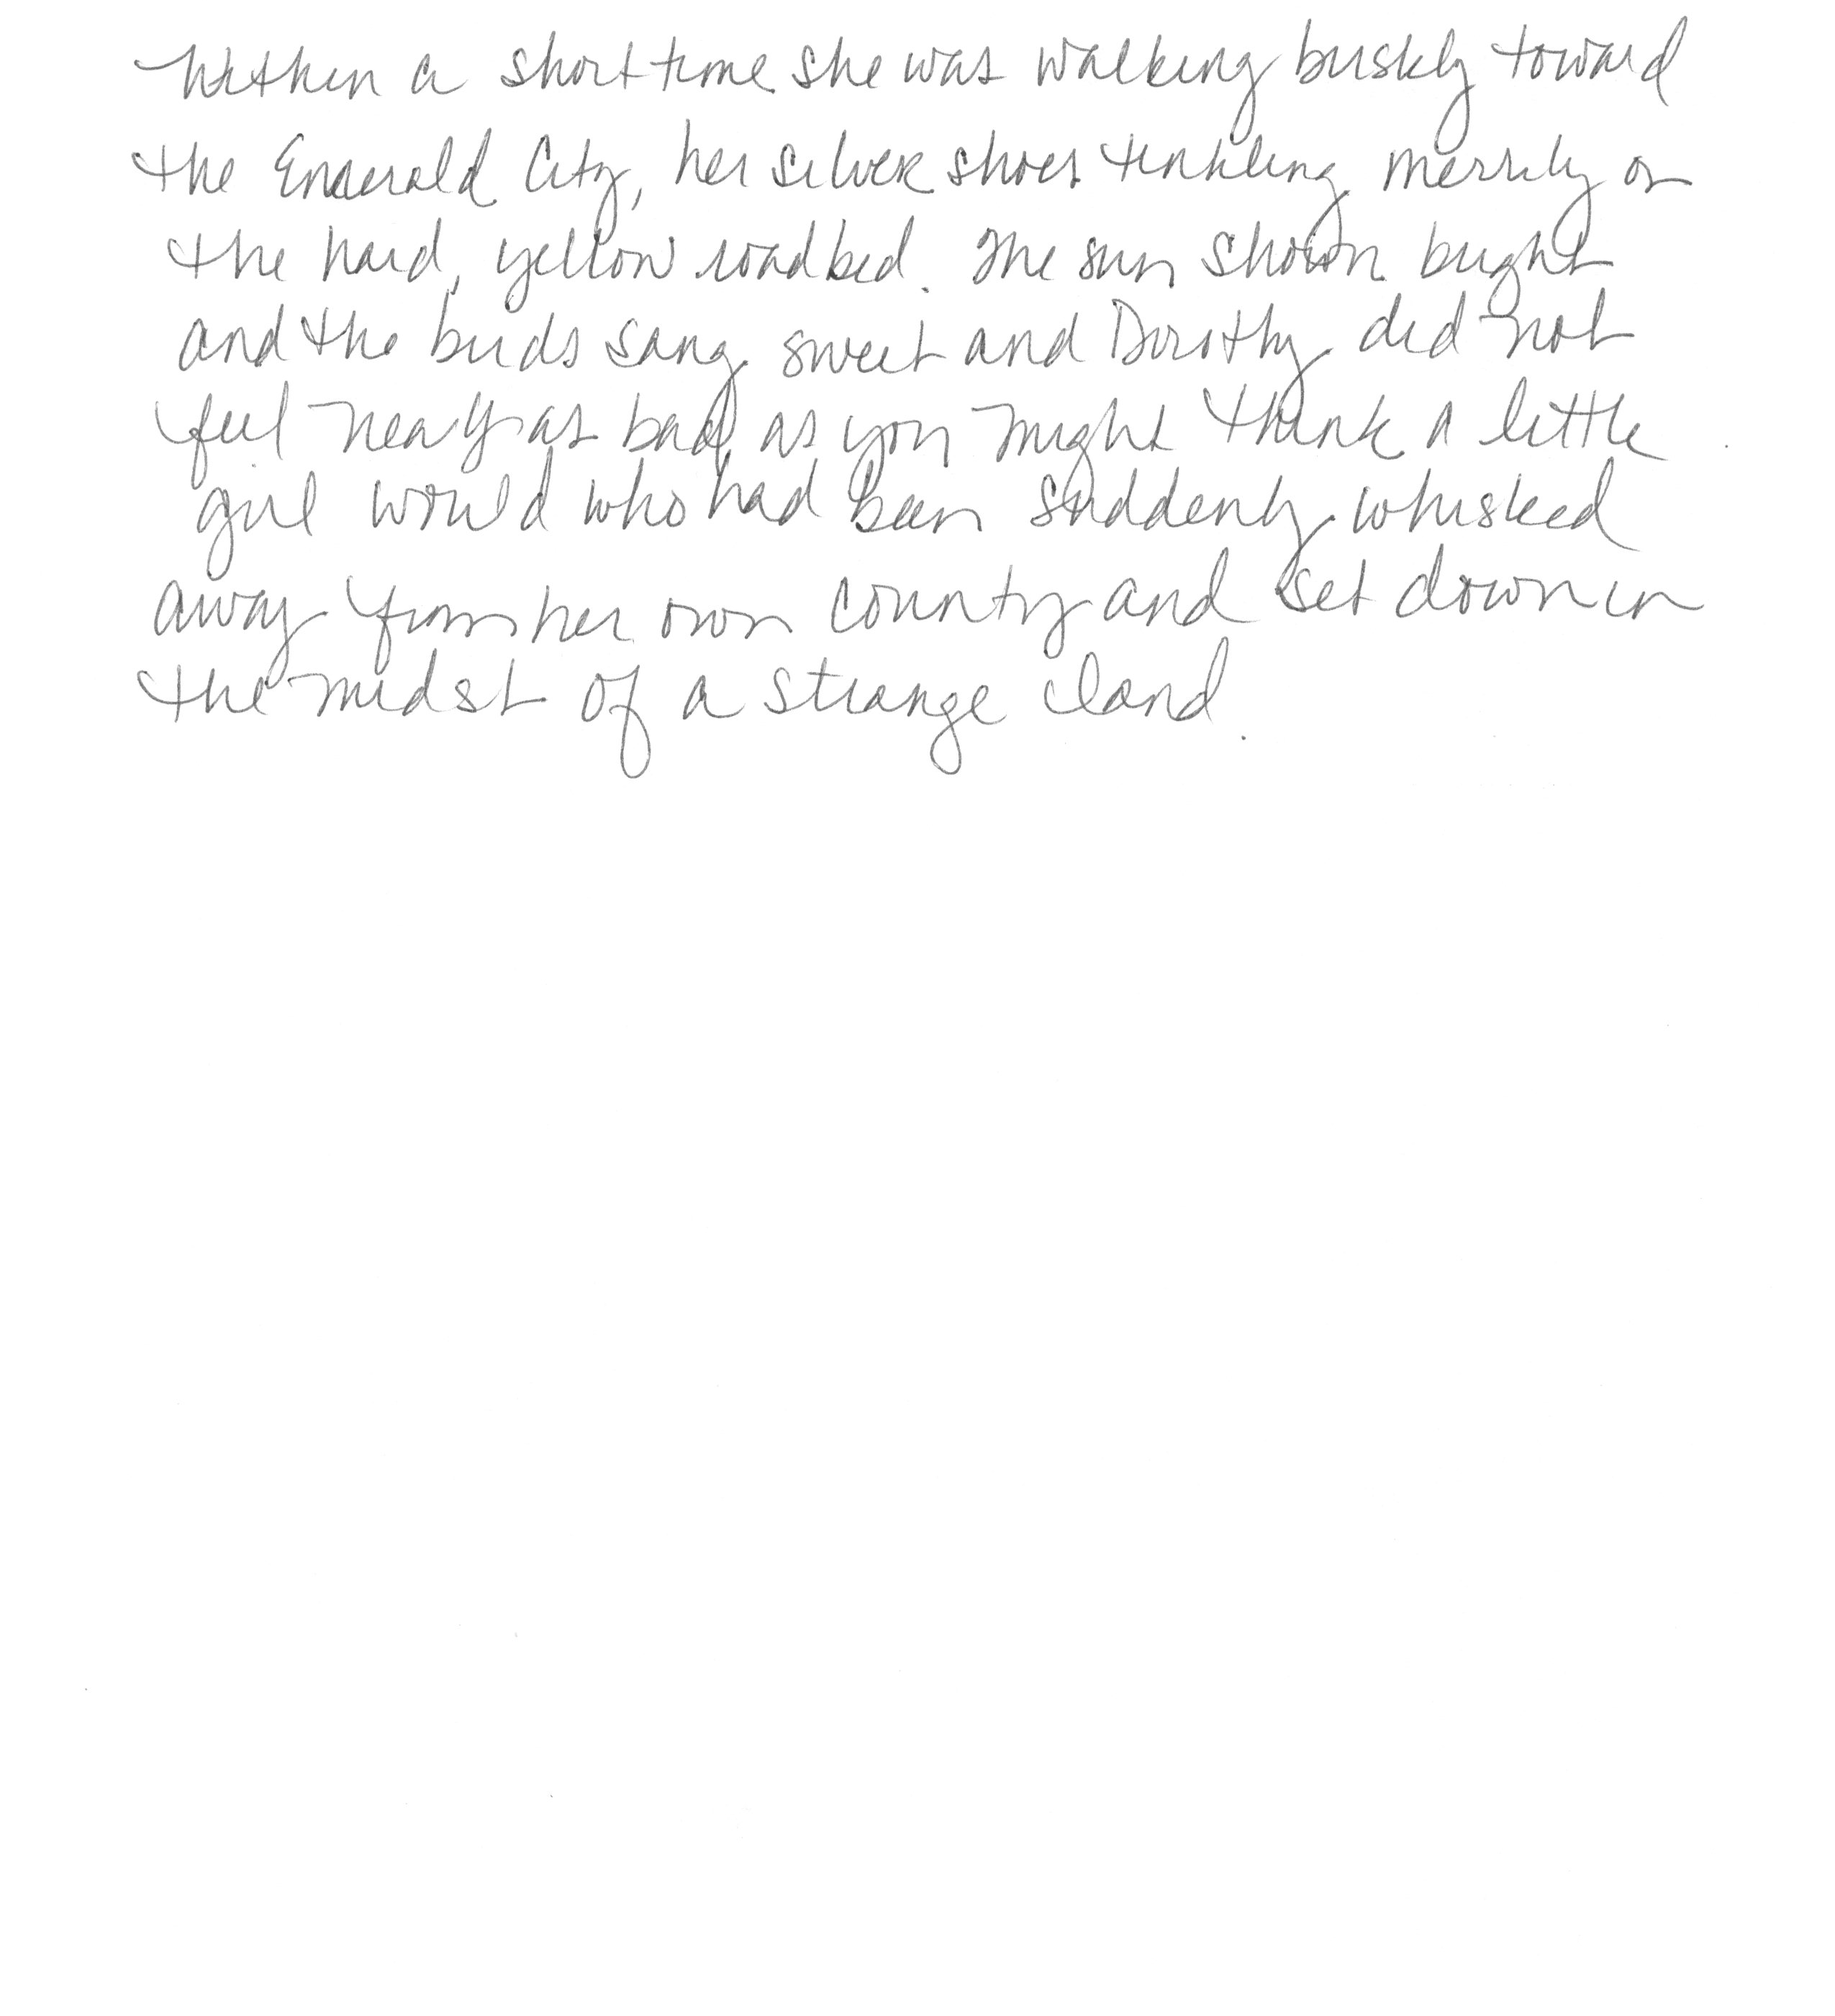 Within a short time she was walking briskly toward
the Emerald City, her silver shoes tinkling merrily on
the hard, yellow roadbed. The sun shown bright
and the birds sang sweet and Dorothy did not
feel nearly as bad as you might think a little
girl would who had been suddenly whisked
away from her own country and set down in
the midst of a strange land.